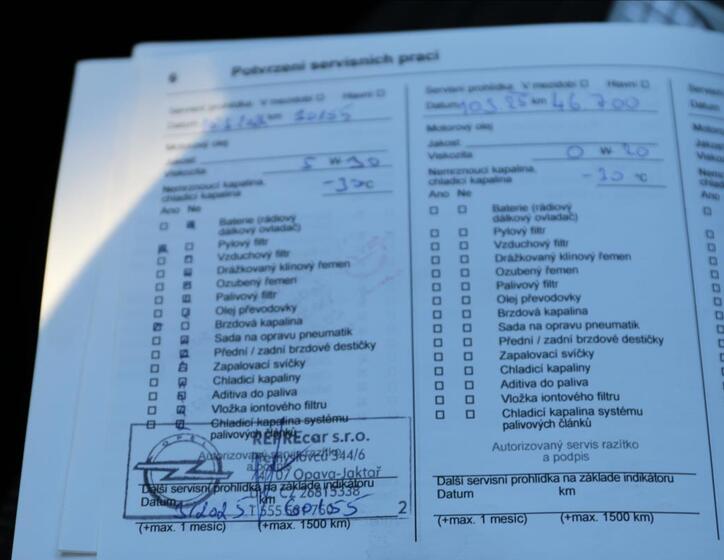 6 Potvrzení servisních prací
Servisní prohlídka: V mezidobí Hlavní
Datum km
Motorový olej
Jakost
Viskozita 5 W 30
Nemrznoucí kapalina,
chladicí kapalina -30 °C
Ano Ne
Baterie (rádiový
dálkový ovladač)
Pylový filtr
Vzduchový filtr
Drážkovaný klínový řemen
Ozubený řemen
Palivový filtr
Olej převodovky
Brzdová kapalina
Sada na opravu pneumatik
Přední / zadní brzdové destičky
Zapalovací svíčky
Chladicí kapaliny
Aditiva do paliva
Vložka iontového filtru
Chladicí kapalina systému
palivových článků
Autorizovaný servis razítko
a podpis
OPEL
car s.r.o.
344/6
07 Opava-Jaktař
CZ 26815338
2
Další servisní prohlídka na základě indikátoru
Datum km
(+max. 1 měsíc) (+max. 1500 km)
Servisní prohlídka: V mezidobí Hlavní
Datum km 46 700
Motorový olej
Jakost
Viskozita 0 W 20
Nemrznoucí kapalina,
chladicí kapalina -30 °C
Ano Ne
Baterie (rádiový
dálkový ovladač)
Pylový filtr
Vzduchový filtr
Drážkovaný klínový řemen
Ozubený řemen
Palivový filtr
Olej převodovky
Brzdová kapalina
Sada na opravu pneumatik
Přední / zadní brzdové destičky
Zapalovací svíčky
Chladicí kapaliny
Aditiva do paliva
Vložka iontového filtru
Chladicí kapalina systému
palivových článků
Autorizovaný servis razítko
a podpis
Další servisní prohlídka na základě indikátoru
Datum km
(+max. 1 měsíc) (+max. 1500 km)